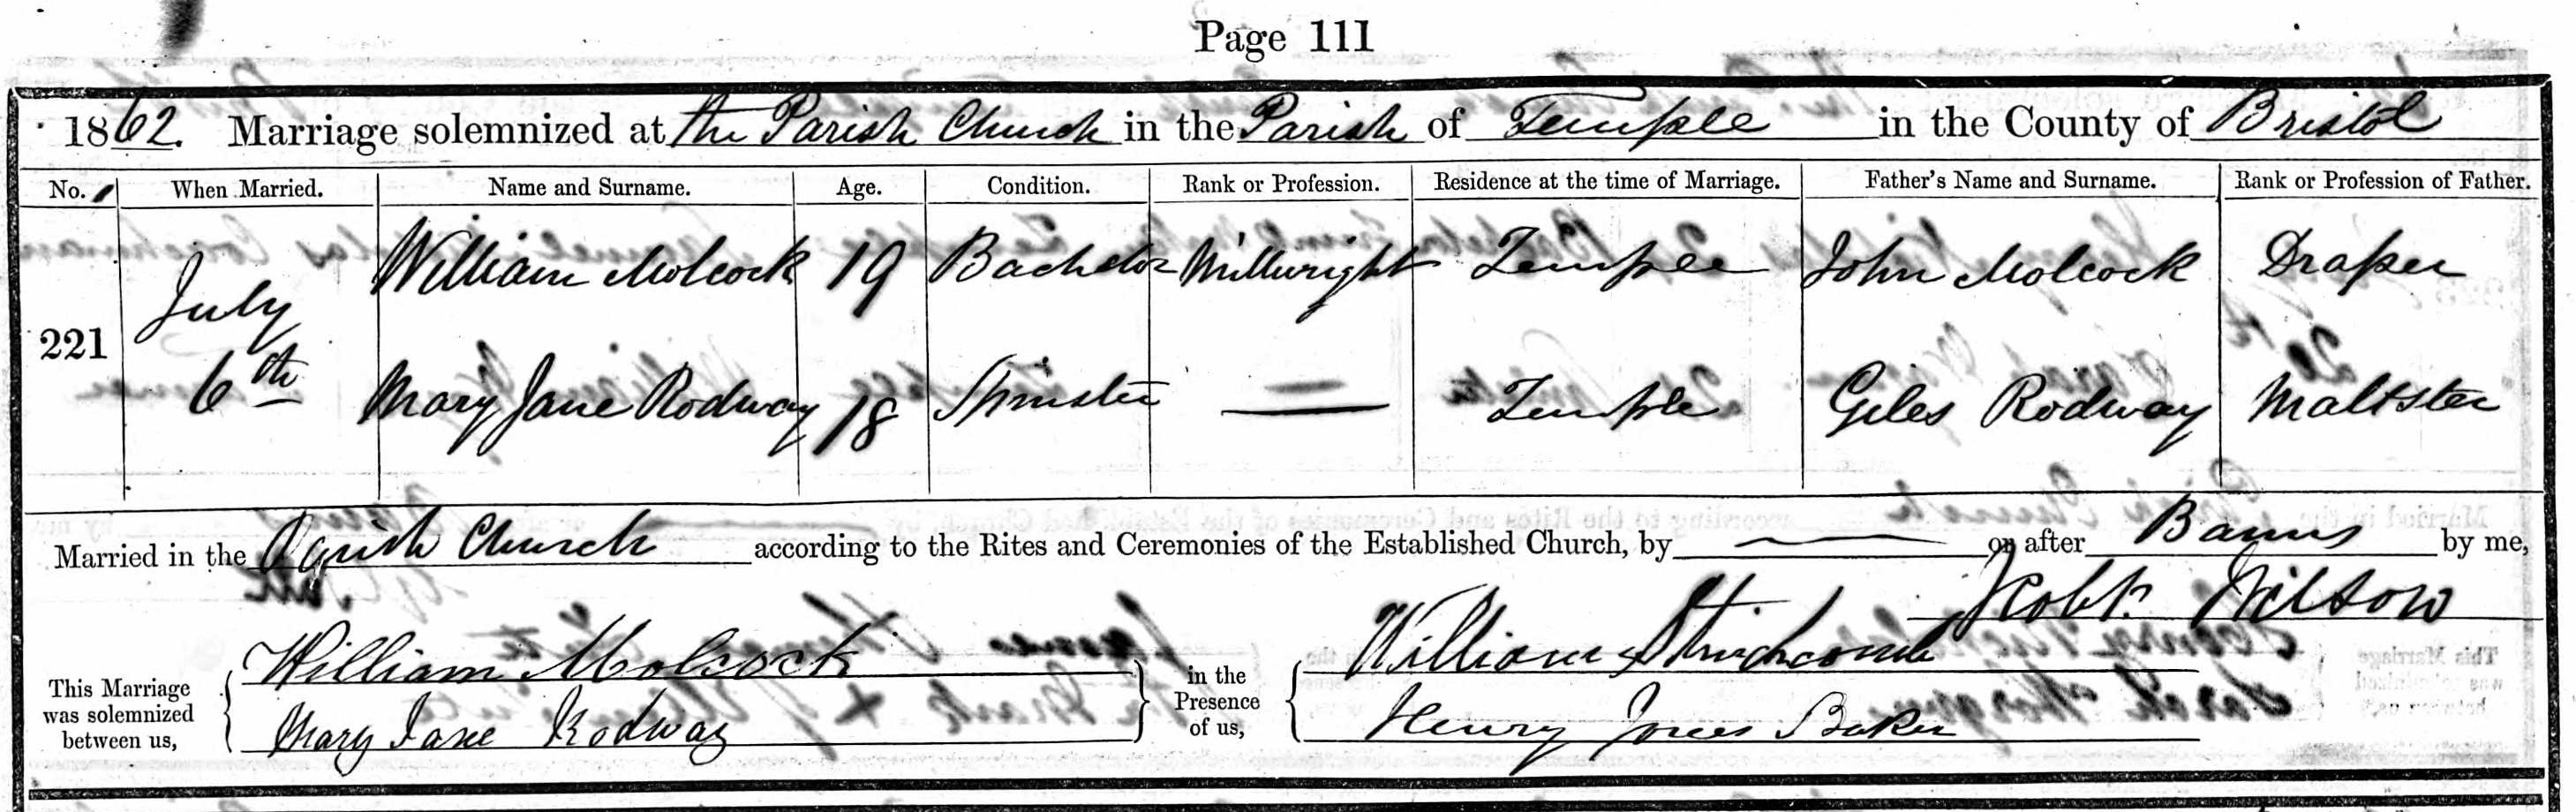 Page 111
1862. Marriage solemnized at the Parish Church in the Parish of Temple in the County of Bristol
No. When Married. Name and Surname. Age. Condition. Rank or Profession. Residence at the time of Marriage. Father's Name and Surname. Rank or Profession of Father.
William Molcock 19 Bachelor Millwright Temple John Molcock Draper
July
221
6th Mary Jane Rodway 18 Spinster — Temple Giles Rodway Maltster
Married in the Parish Church according to the Rites and Ceremonies of the Established Church, by — or after Banns by me,
Wilson
This Marriage was solemnized between us,
William Molcock
Mary Jane Rodway
in the Presence of us,
William Stinchcomb
Henry Jones Baker